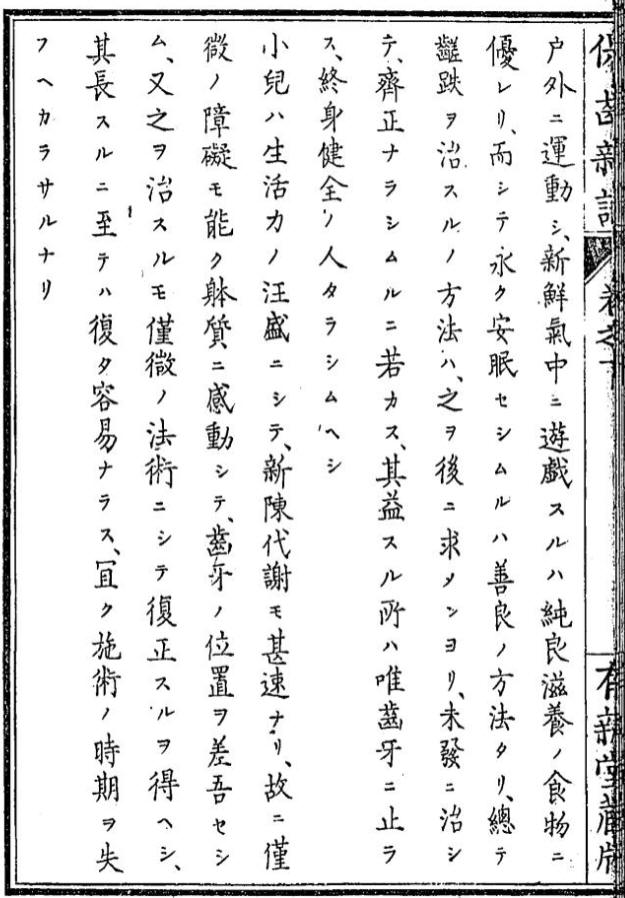 保齒新論 卷之下 有新堂藏版
戸外ニ運動シ、新鮮氣中ニ遊戯スルハ純良滋養ノ食物ニ
優レリ、而シテ永ク安眠セシムルハ善良ノ方法タリ、總テ
齟跌ヲ治スルノ方法ハ、之ヲ後ニ求メンヨリ、未發ニ治シ
テ、齊正ナラシムルニ若カス、其益スル所ハ唯齒牙ニ止ラ
ス、終身健全ノ人タラシムヘシ
小兒ハ生活力ノ汪盛ニシテ、新陳代謝モ甚速ナリ、故ニ僅
微ノ障礙モ能ク躰質ニ感動シテ、齒牙ノ位置ヲ差吾セシ
ム、又之ヲ治スルモ僅微ノ法術ニシテ復正スルヲ得ヘシ、
其長スルニ至テハ復タ容易ナラス、冝ク施術ノ時期ヲ失
フヘカラサルナリ